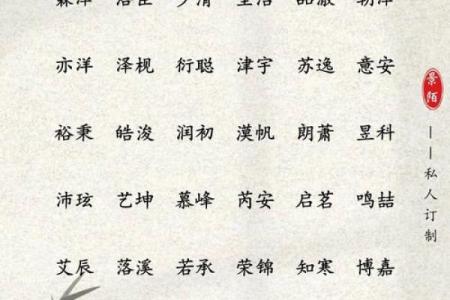 亦洋 泽枧 衍聪 津宇 苏逸 意安
裕秉 皓浚 润初 漠帆 朗萧 昱科
沛玹 艺坤 慕峰 芮安 启茗 鸣喆
艾辰 落溪 若承 荣锦 知寒 博嘉
景陌
——私人订制